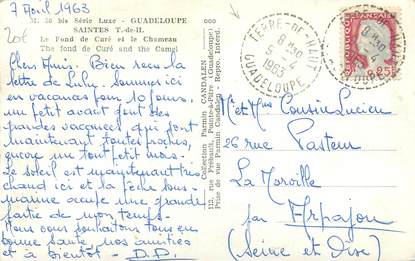 7 Avril 1963
M. 50 bis Série Luxe - GUADELOUPE
SAINTES T.-de-H.
Le Fond de Curé et le Chameau
The fond de Curé and the Camel
20f
Chers Amis. Bien reçu la
lettre de Lulu, sommes ici
en vacances pour 10 jours,
un petit avant goût des
grandes vacances qui sont
maintenant toutes proches,
encore un tout petit mois.
Le soleil est maintenant très
chaud ici et la pêche sous-
marine occupe une grande
partie de mon temps.
Nous vous souhaitons tous en
bonne santé, nos amitiés
et à bientôt - D.D.
Collection Parmin CANDALEN
112, rue Frébault, Pointe-à-Pitre (Guadeloupe)
Prise de vue Parmin Candalen Repro. Interd.
TERRE-DE-HAUT
8 H30
5-4
1963
GUADELOUPE
8 H30
0,25
Mr et Mme Cousin Lucien
26 rue Pasteur
La Norville
par Arpajon
(Seine et Oise)